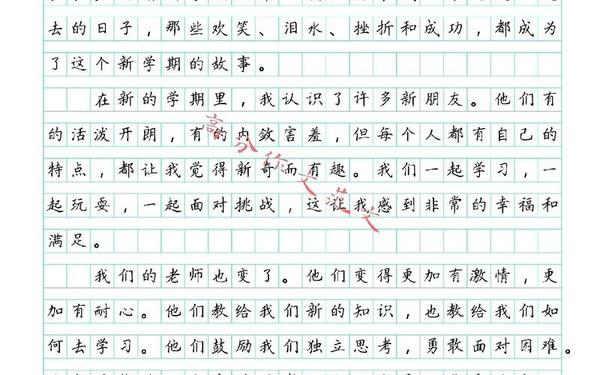 去的日子，那些欢笑、泪水、挫折和成功，都成为
了这个新学期的故事。
在新的学期里，我认识了许多新朋友。他们有
的活泼开朗，有的内敛害羞，但每个人都有自己的
特点，都让我觉得新奇而有趣。我们一起学习，一
起玩耍，一起面对挑战，这让我感到非常的幸福和
满足。
我们的老师也变了。他们变得更加有激情，更
加有耐心。他们教给我们新的知识，也教给我们如
何去学习。他们鼓励我们独立思考，勇敢面对困难。
高分作文范文